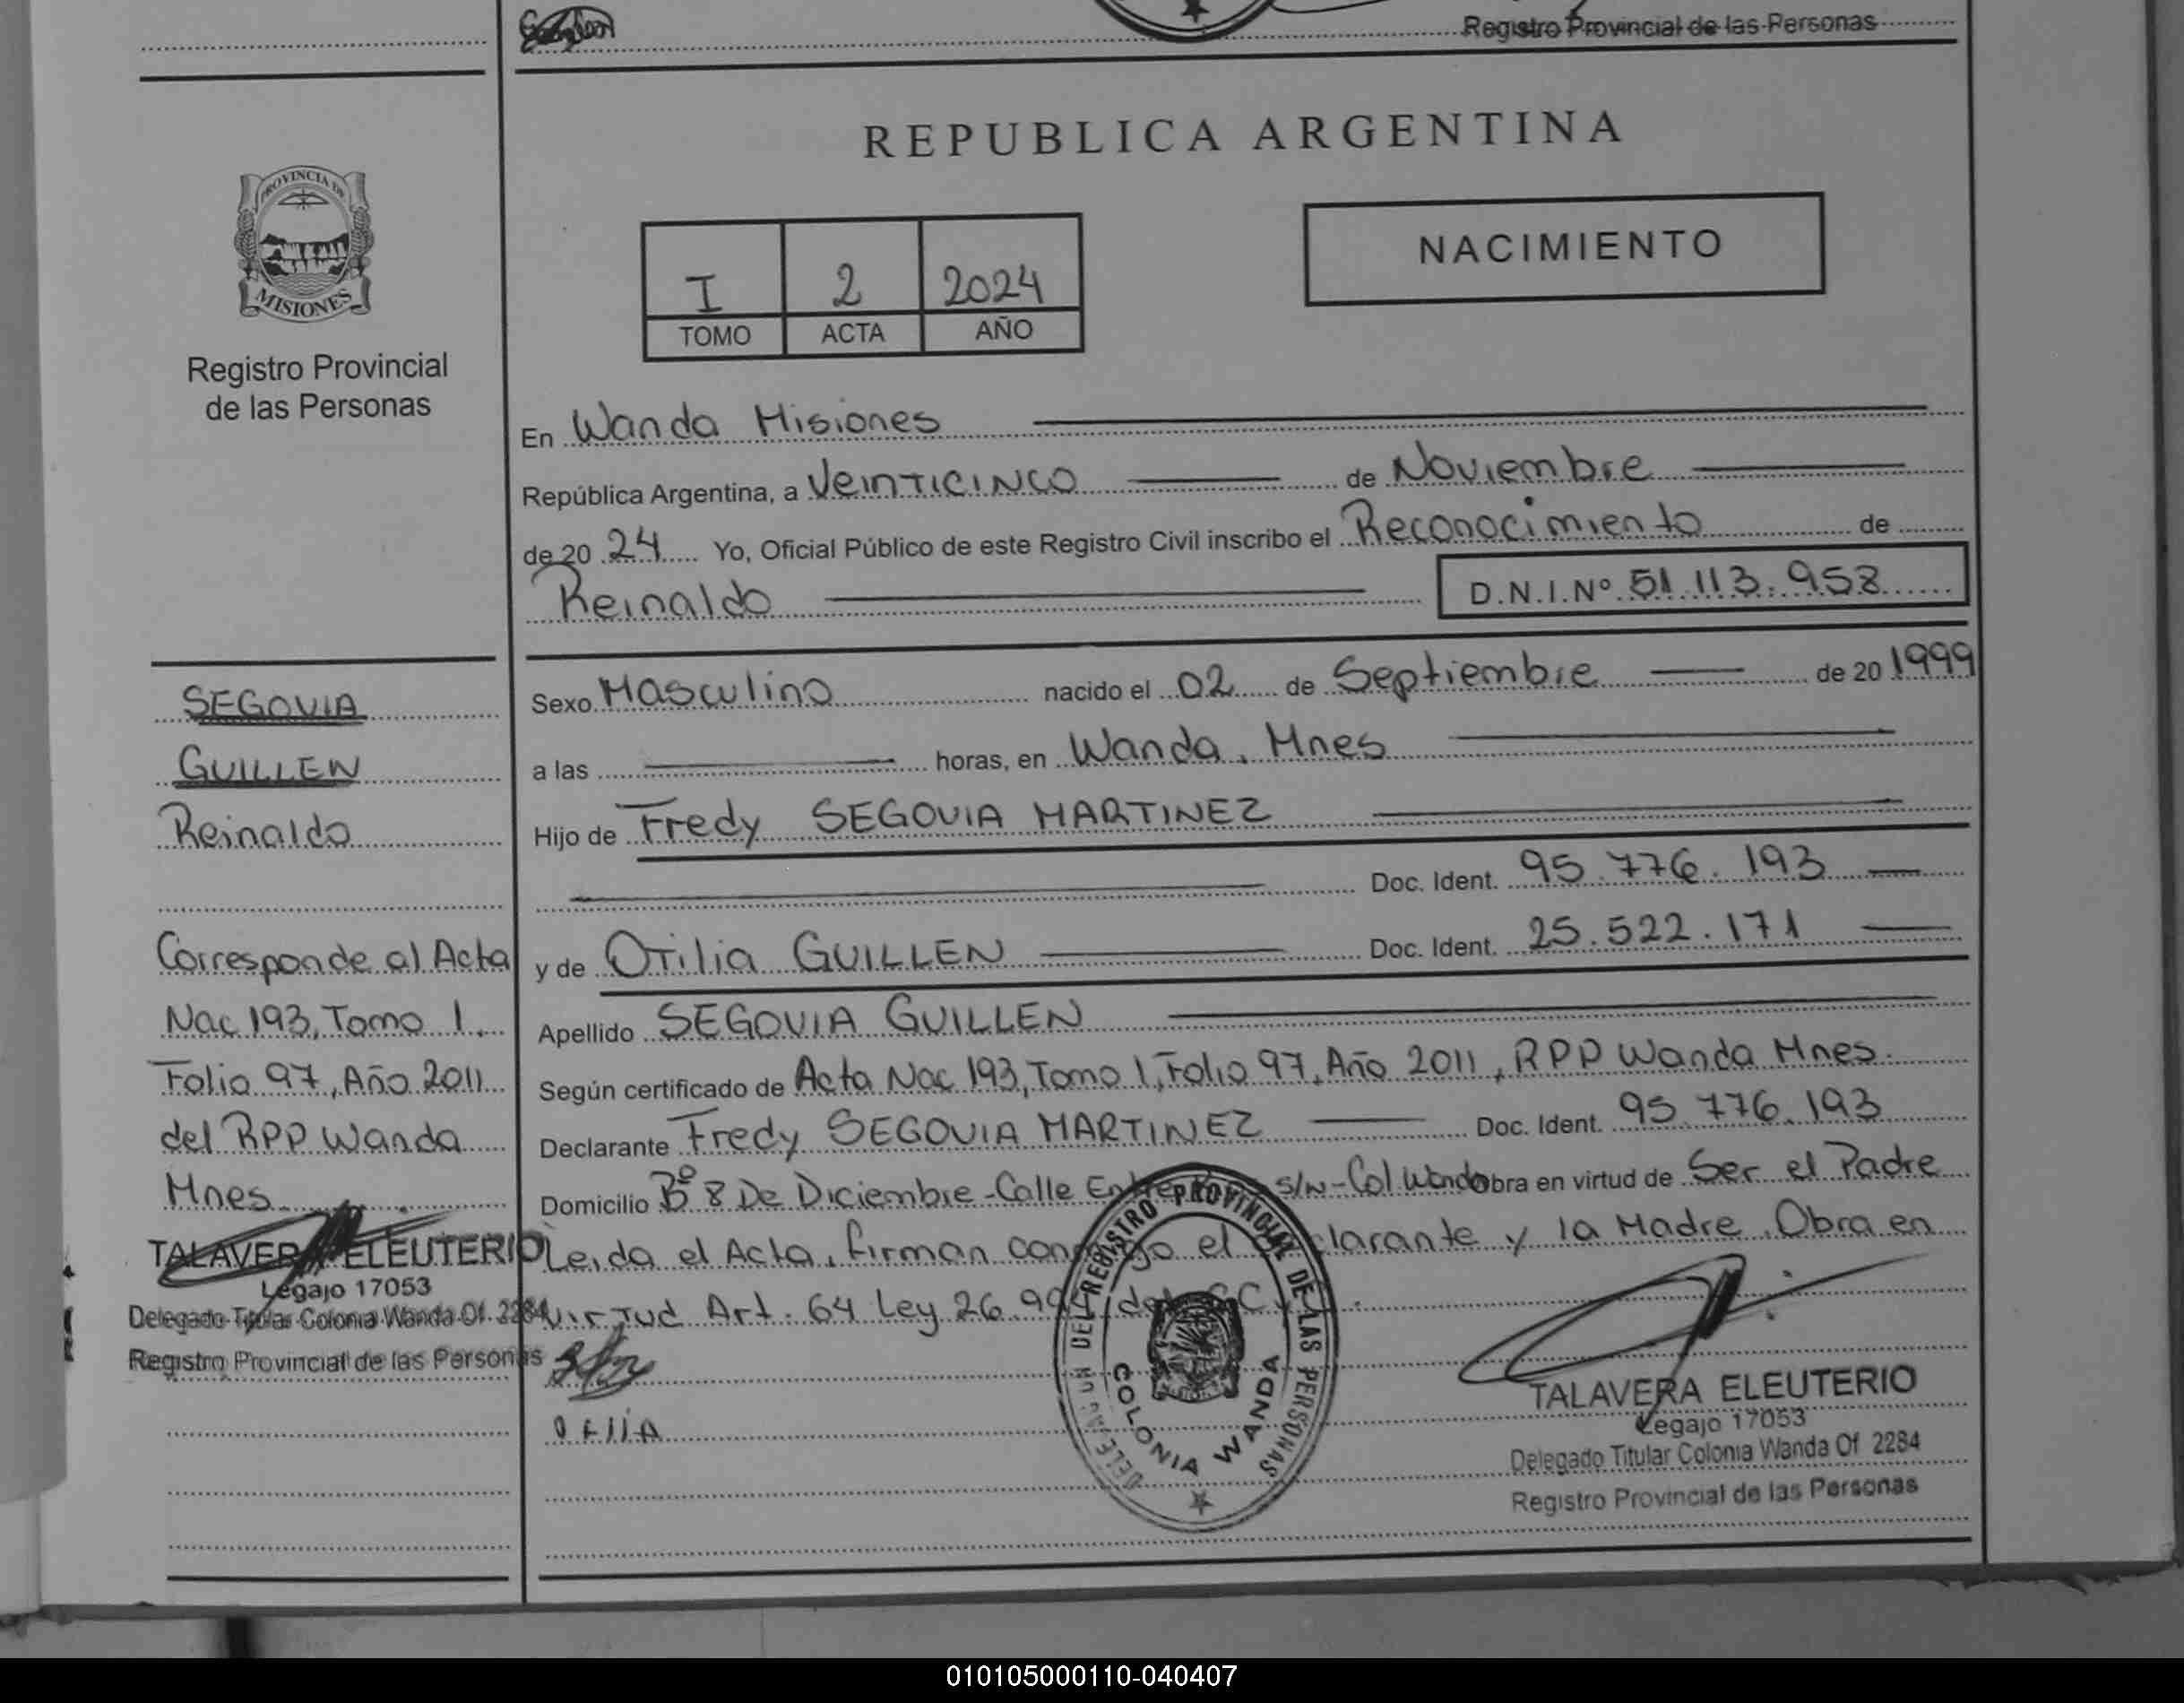 Registro Provincial de las Personas
REPUBLICA ARGENTINA
PROVINCIA DE
MISIONES
Registro Provincial
de las Personas
I 2 2024
TOMO ACTA AÑO
NACIMIENTO
En Wanda Misiones
República Argentina, a Veinticinco de Noviembre
de 20 24 Yo, Oficial Público de este Registro Civil inscribo el Reconocimiento de
Reinaldo D.N.I.Nº 51.113.958
Sexo Masculino nacido el 02 de Septiembre de 20 1999
a las horas, en Wanda, Mnes
Hijo de Fredy SEGOVIA MARTINEZ
Doc. Ident. 95.776.193
y de Otilia GUILLEN Doc. Ident. 25.522.171
Apellido SEGOVIA GUILLEN
Según certificado de Acta Nac 193, Tomo 1, Folio 97, Año 2011, RPP Wanda Mnes.
Declarante Fredy SEGOVIA MARTINEZ Doc. Ident. 95.776.193
Domicilio Bº 8 De Diciembre - Calle s/n - Col Wanda obra en virtud de Ser el Padre
Leida el Acta, firman conmigo el Declarante y la Madre. Obra en
virtud Art. 64 Ley 26.994 del
OtiliA
SEGOVIA
GUILLEN
Reinaldo
Corresponde al Acta
Nac 193, Tomo 1,
Folio 97, Año 2011
del RPP Wanda
Mnes
TALAVERA ELEUTERIO
Legajo 17053
Delegado Titular Colonia Wanda Of. 2284
Registro Provincial de las Personas
DEL REGISTRO PROVINCIAL DE LAS PERSONAS
COLONIA WANDA
TALAVERA ELEUTERIO
Legajo 17053
Delegado Titular Colonia Wanda Of 2284
Registro Provincial de las Personas
010105000110-040407